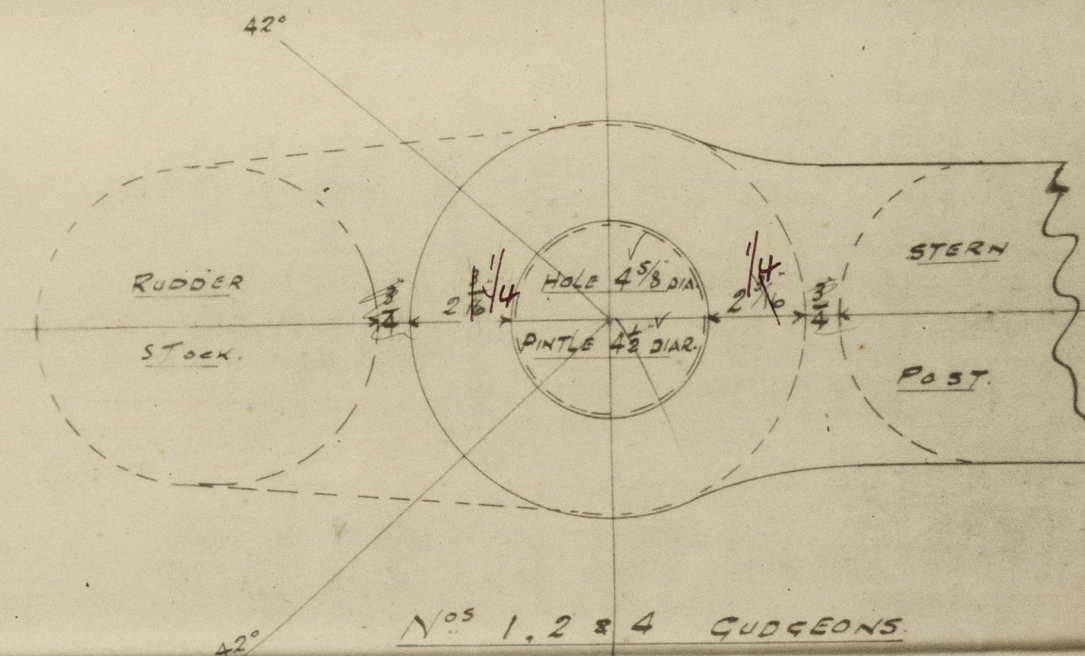 42°
RUDDER
STOCK.
3/4
2 3/16 1/4
HOLE 4 5/8 DIA.
PINTLE 4 1/2 DIAR.
2 3/16 1/4
3/4
STERN
POST.
42°
Nos 1, 2 & 4 GUDGEONS.